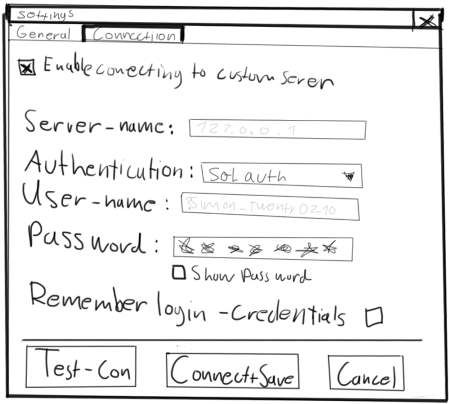 Settings
General Connection
Enable conecting to custom Server
Server-name: 127.0.0.1
Authentication: Sol auth
User-name: Simon_Twenty0210
Password:
Show Password
Remember login-Credentials
Test-Con Connect+Save Cancel